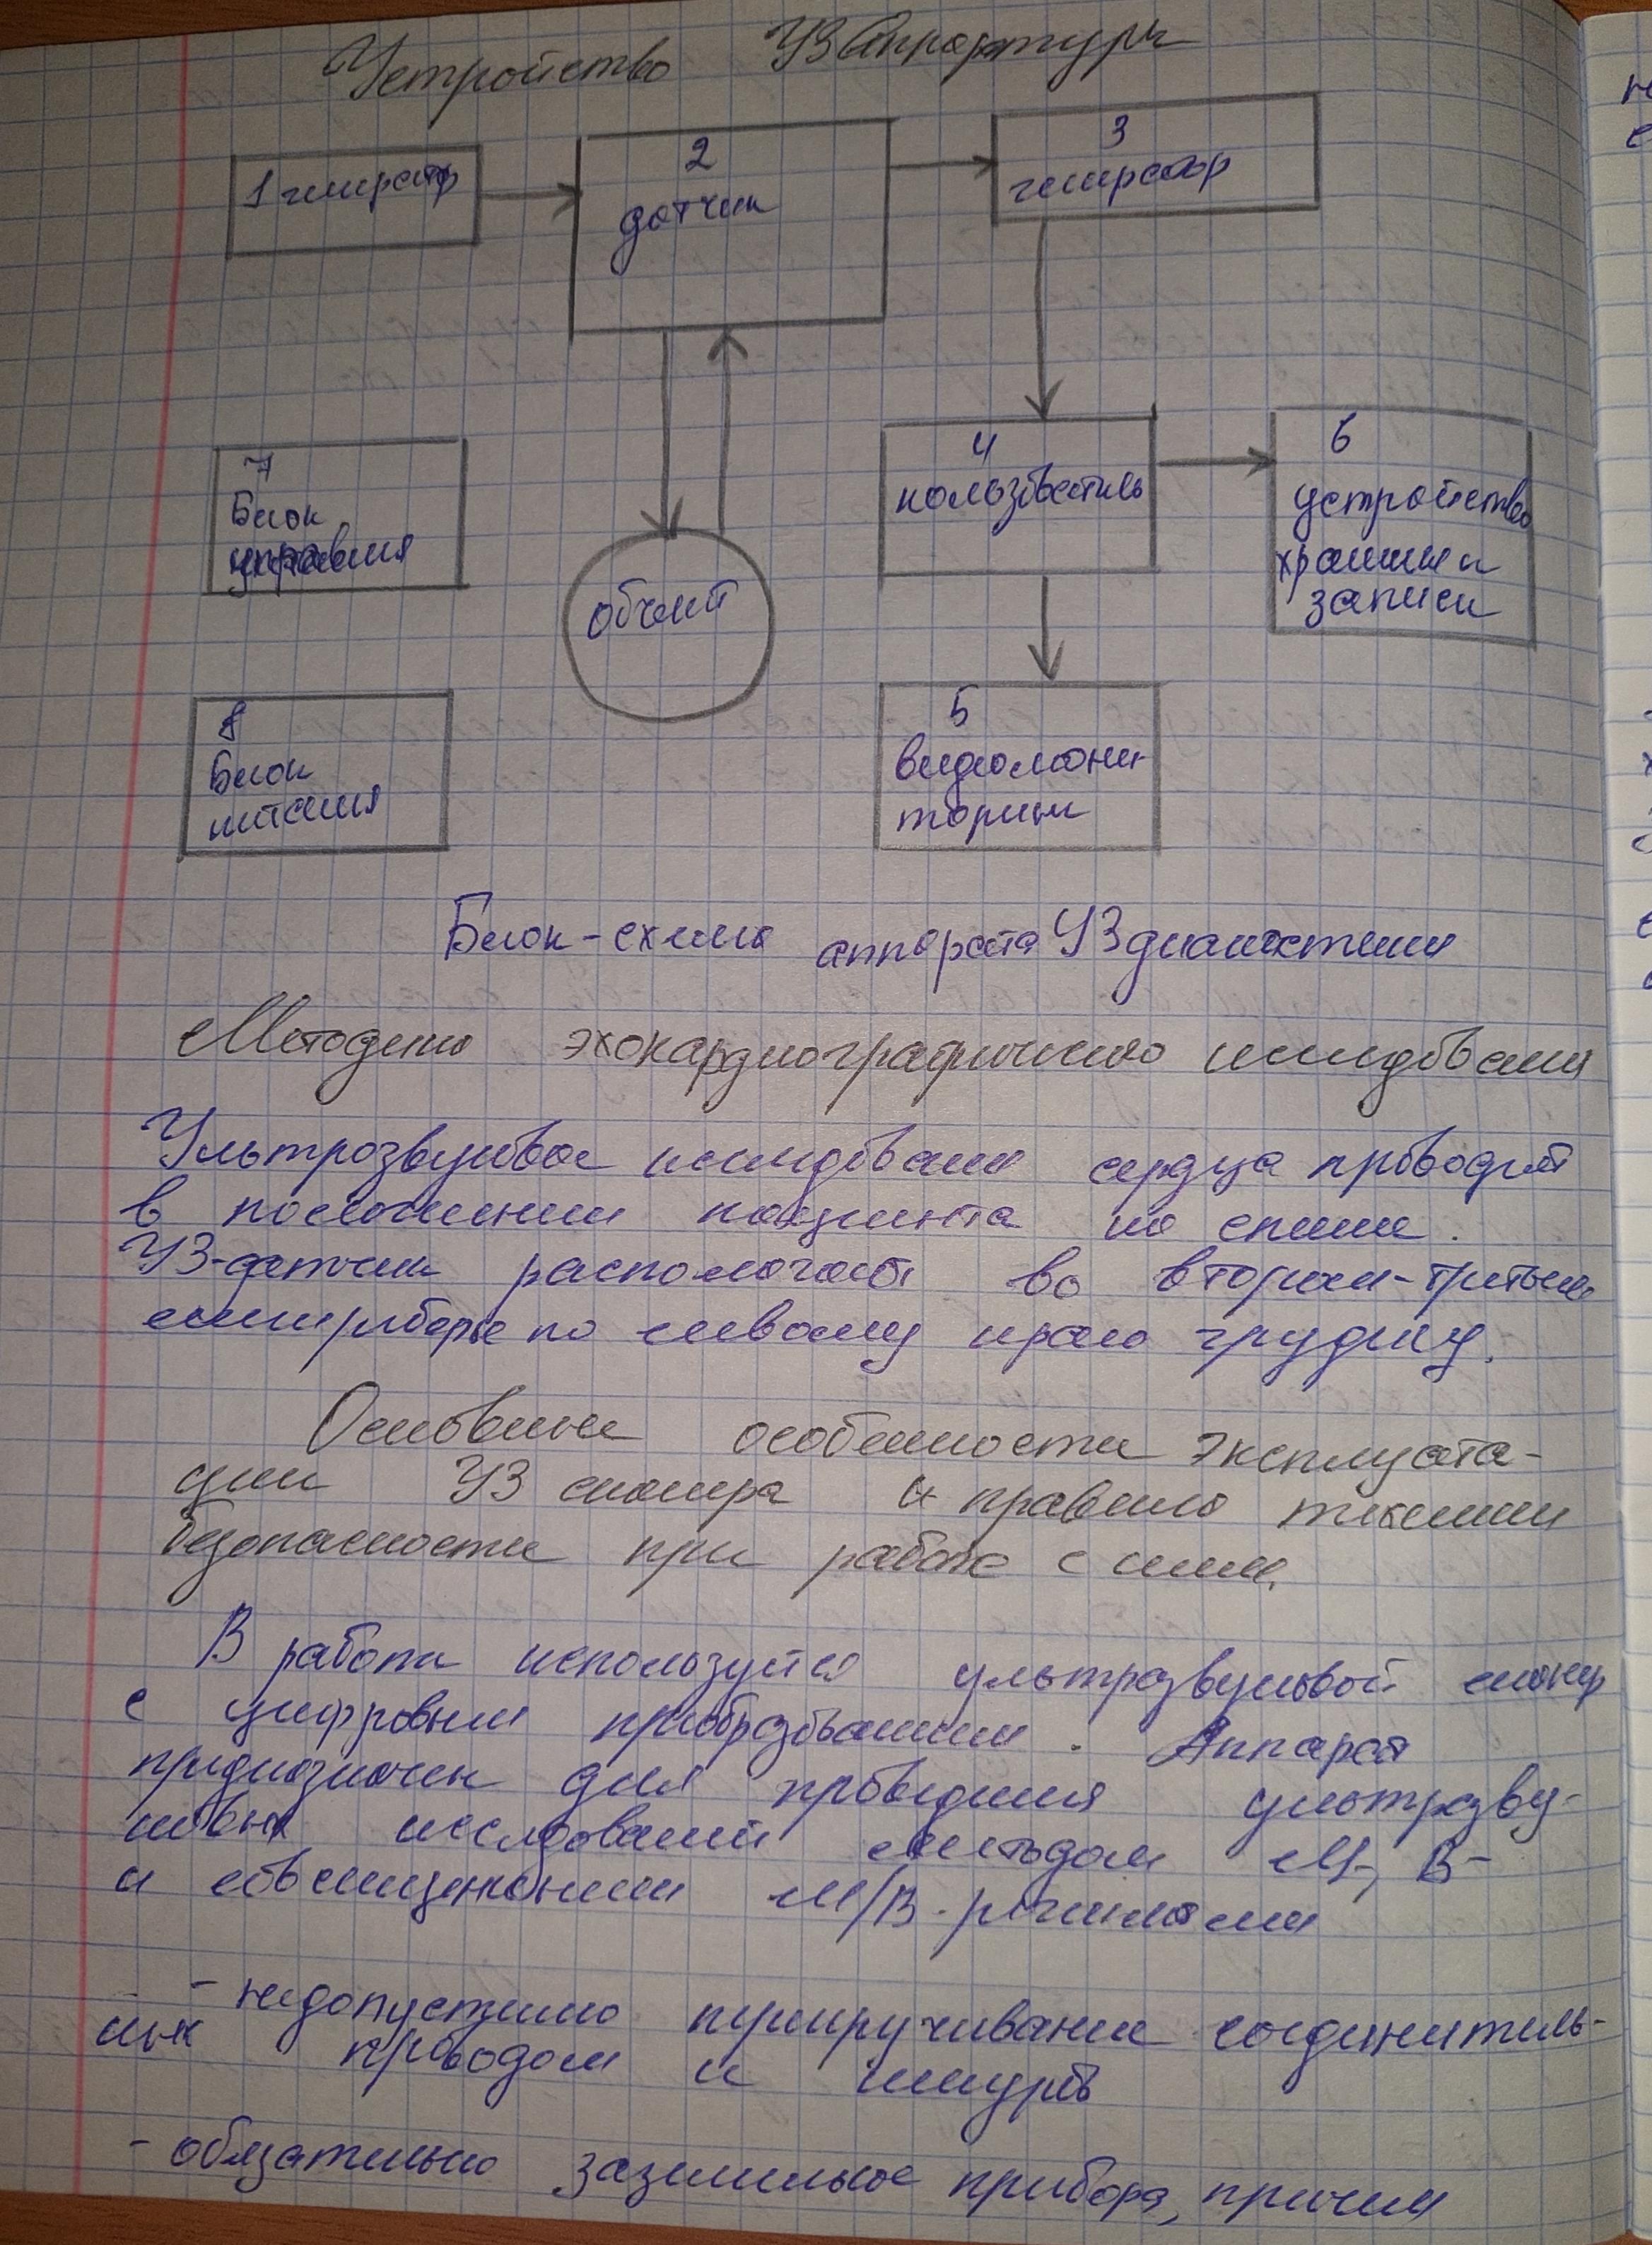 Устройство УЗ Аппаратуры
1 генератор
2
датчик
3
генератор
7
Блок
4
6
устройство
хранения и
записи
объект
8
Блок
питания
5
видеомони-
Блок-схема аппарата УЗ диагностики
Методика эхокардиографического исследования
Ультрозвуковое исследование сердца проводят
в положении пациента на спине.
УЗ-датчик распологают во втором-третьем
межреберье по левому краю грудины.
Основные особенности эксплуата-
ции УЗ сканера и правила техники
безопасности при работе с ним.
В работе используется ультразвуковой сканер
с цифровым преобразованием. Аппарат
предназначен для проведения ультразву-
ковых исследований методом М-, В-
и совмещенными М/В-режимами
- недопустимо перекручивание соединитель-
ных проводом и шнуров
- обязательно заземление прибора, причем